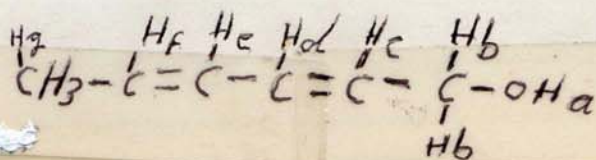 Hg Hf He Hd Hc Hb
CH3-C=C-C=C-C-OHa
Hb